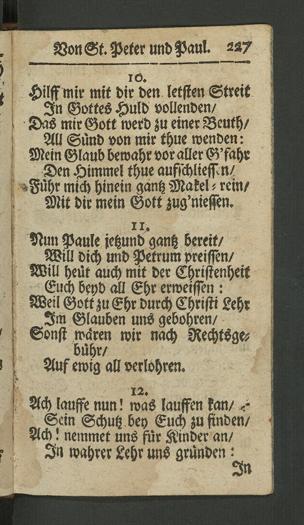 Von St. Peter und Paul. 227
10.
Hilff mir mit dir den letsten Streit
In Gottes Huld vollenden/
Das mir Gott werd zu einer Beuth/
All Sünd von mir thue wenden:
Mein Glaub bewahr vor aller G'fahr
Den Himmel thue aufschliessen/
Führ mich hinein gantz Makel-rein/
Mit dir mein Gott zug'niessen.
11.
Nun Paule jetzund gantz bereit/
Will dich und Petrum preissen/
Will heüt auch mit der Christenheit
Euch beyd all Ehr erweissen:
Weil Gott zu Ehr durch Christi Lehr
Im Glauben uns gebohren/
Sonst wären wir nach Rechtsge-
bühr/
Auf ewig all verlohren.
12.
Ach lauffe nun! was lauffen kan/
Sein Schutz bey Euch zu finden/
Ach! nemmet uns für Kinder an/
In wahrer Lehr uns gründen:
In